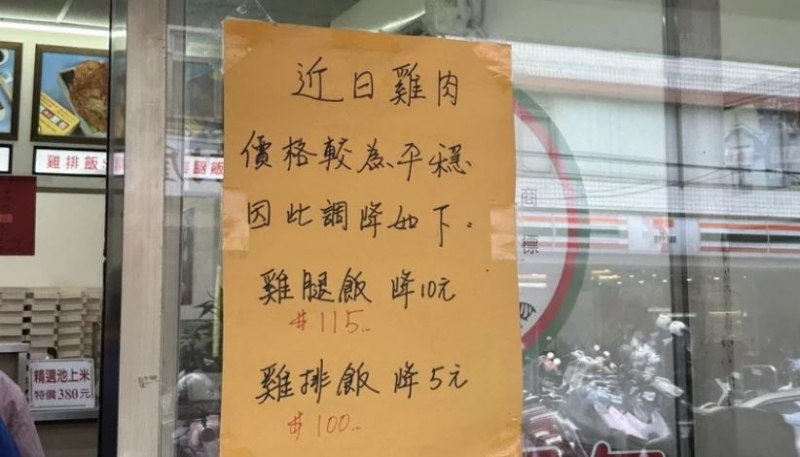 近日雞肉
價格較為平穩
因此調降如下。
雞腿飯 降10元
$115..
雞排飯 降5元
$100..
雞排飯
腿飯
精選池上米
特價380元
商標